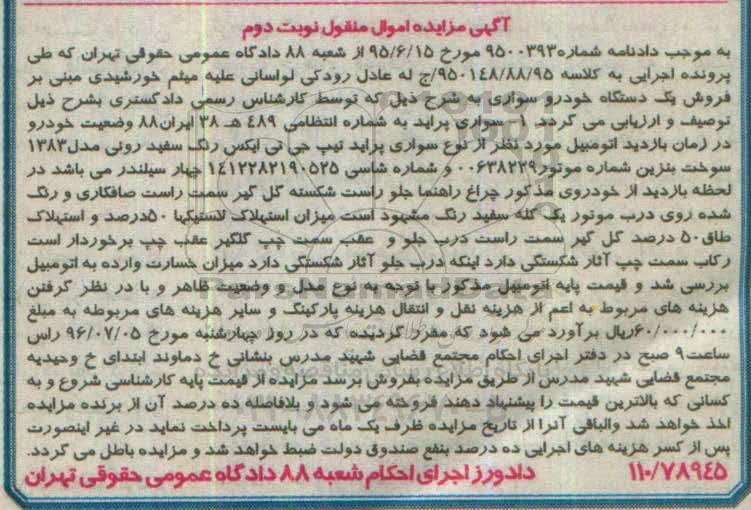 آگهی مزایده اموال منقول نوبت دوم
به موجب دادنامه شماره۹۵۰۰۳۹۳ مورخ ۹۵/۶/۱۵ از شعبه ۸۸ دادگاه عمومی حقوقی تهران که طی
پرونده اجرایی به کلاسه ۹۵۰۱۴۸/۸۸/۹۵/ج له عادل رودکی لواسانی علیه میثم خورشیدی مبنی بر
فروش یک دستگاه خودرو سواری به شرح ذیل که توسط کارشناس رسمی دادگستری بشرح ذیل
توصیف و ارزیابی می گردد. ۱- سواری پراید به شماره انتظامی ۴۸۹ هـ ۳۸ ایران۸۸ وضعیت خودرو
در زمان بازدید اتومبیل مورد نظر از نوع سواری پراید تیپ جی تی ایکس رنگ سفید روغنی مدل۱۳۸۳
سوخت بنزین شماره موتور۰۰۶۳۸۲۲۹ و شماره شاسی ۱۴۱۲۲۸۲۱۹۰۵۲۵ چهار سیلندر می باشد در
لحظه بازدید از خودروی مذکور چراغ راهنما جلو راست شکسته گل گیر سمت راست صافکاری و رنگ
شده روی درب موتور یک کله سفید رنگ مشهود است میزان استهلاک لاستیکها ۵۰درصد و استهلاک
طاق۵۰ درصد گل گیر سمت راست درب جلو و عقب سمت چپ گلگیر عقب چپ برخوردار است
رکاب سمت چپ آثار شکستگی دارد اینکه درب جلو آثار شکستگی دارد میزان خسارت وارده به اتومبیل
بررسی شد و قیمت پایه اتومبیل مذکور با توجه به نوع مدل و وضعیت ظاهر و با در نظر گرفتن
هزینه های مربوط به اعم از هزینه نقل و انتقال هزینه پارکینگ و سایر هزینه های مربوطه به مبلغ
۶۰/۰۰۰/۰۰۰ریال برآورد می شود که مقرر گردیده که در روز چهارشنبه مورخ ۹۶/۰۷/۰۵ راس
ساعت۹ صبح در دفتر اجرای احکام مجتمع قضایی شهید مدرس بنشانی خ دماوند ابتدای خ وحیدیه
مجتمع قضایی شهید مدرس از طریق مزایده بفروش برسد مزایده از قیمت پایه کارشناسی شروع و به
کسانی که بالاترین قیمت را پیشنهاد دهند فروخته می شود و بلافاصله ده درصد آن از برنده مزایده
اخذ خواهد شد والباقی آنرا از تاریخ مزایده ظرف یک ماه می بایست پرداخت نماید در غیر اینصورت
پس از کسر هزینه های اجرایی ده درصد بنفع صندوق دولت ضبط خواهد شد و مزایده باطل می گردد.
۱۱۰/۷۸۹۴۵ دادورز اجرای احکام شعبه ۸۸ دادگاه عمومی حقوقی تهران